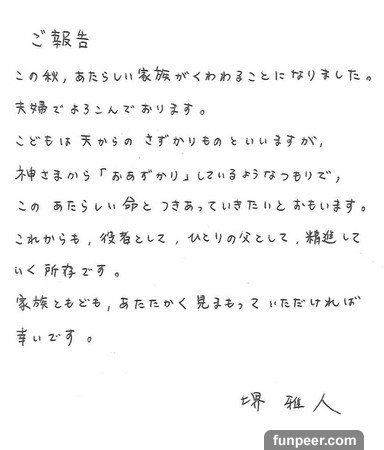 ご報告
この秋，あたらしい家族がくわわることになりました。
夫婦でよろこんでおります。
こどもは天からのさずかりものといいますが，
神さまから「おあずかり」しているようなつもりで，
このあたらしい命とつきあっていきたいとおもいます。
これからも，役者として，ひとりの父として，精進して
いく所存です。
家族ともども，あたたかく見まもっていただければ
幸いです。
堺 雅人
funpeer.com